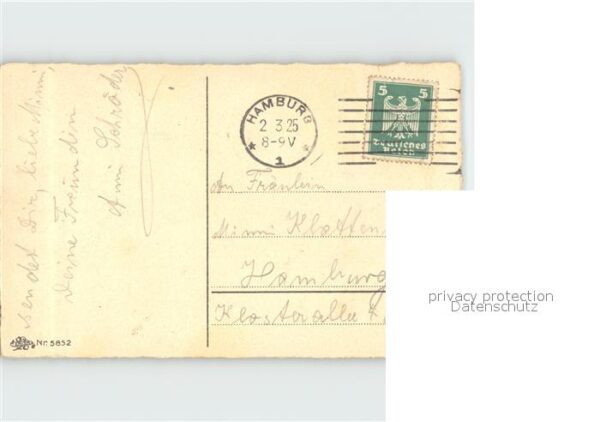 sendet Dir, liebe Mimi,
Deine Freundin
Anni Schröder
HAMBURG
2 3.25
8-9 V
1
5 5
Deutsches
Reich
An Fräulein
Mimi Klotten
Hamburg
Klosterallee
Nr. 5852
privacy protection
Datenschutz